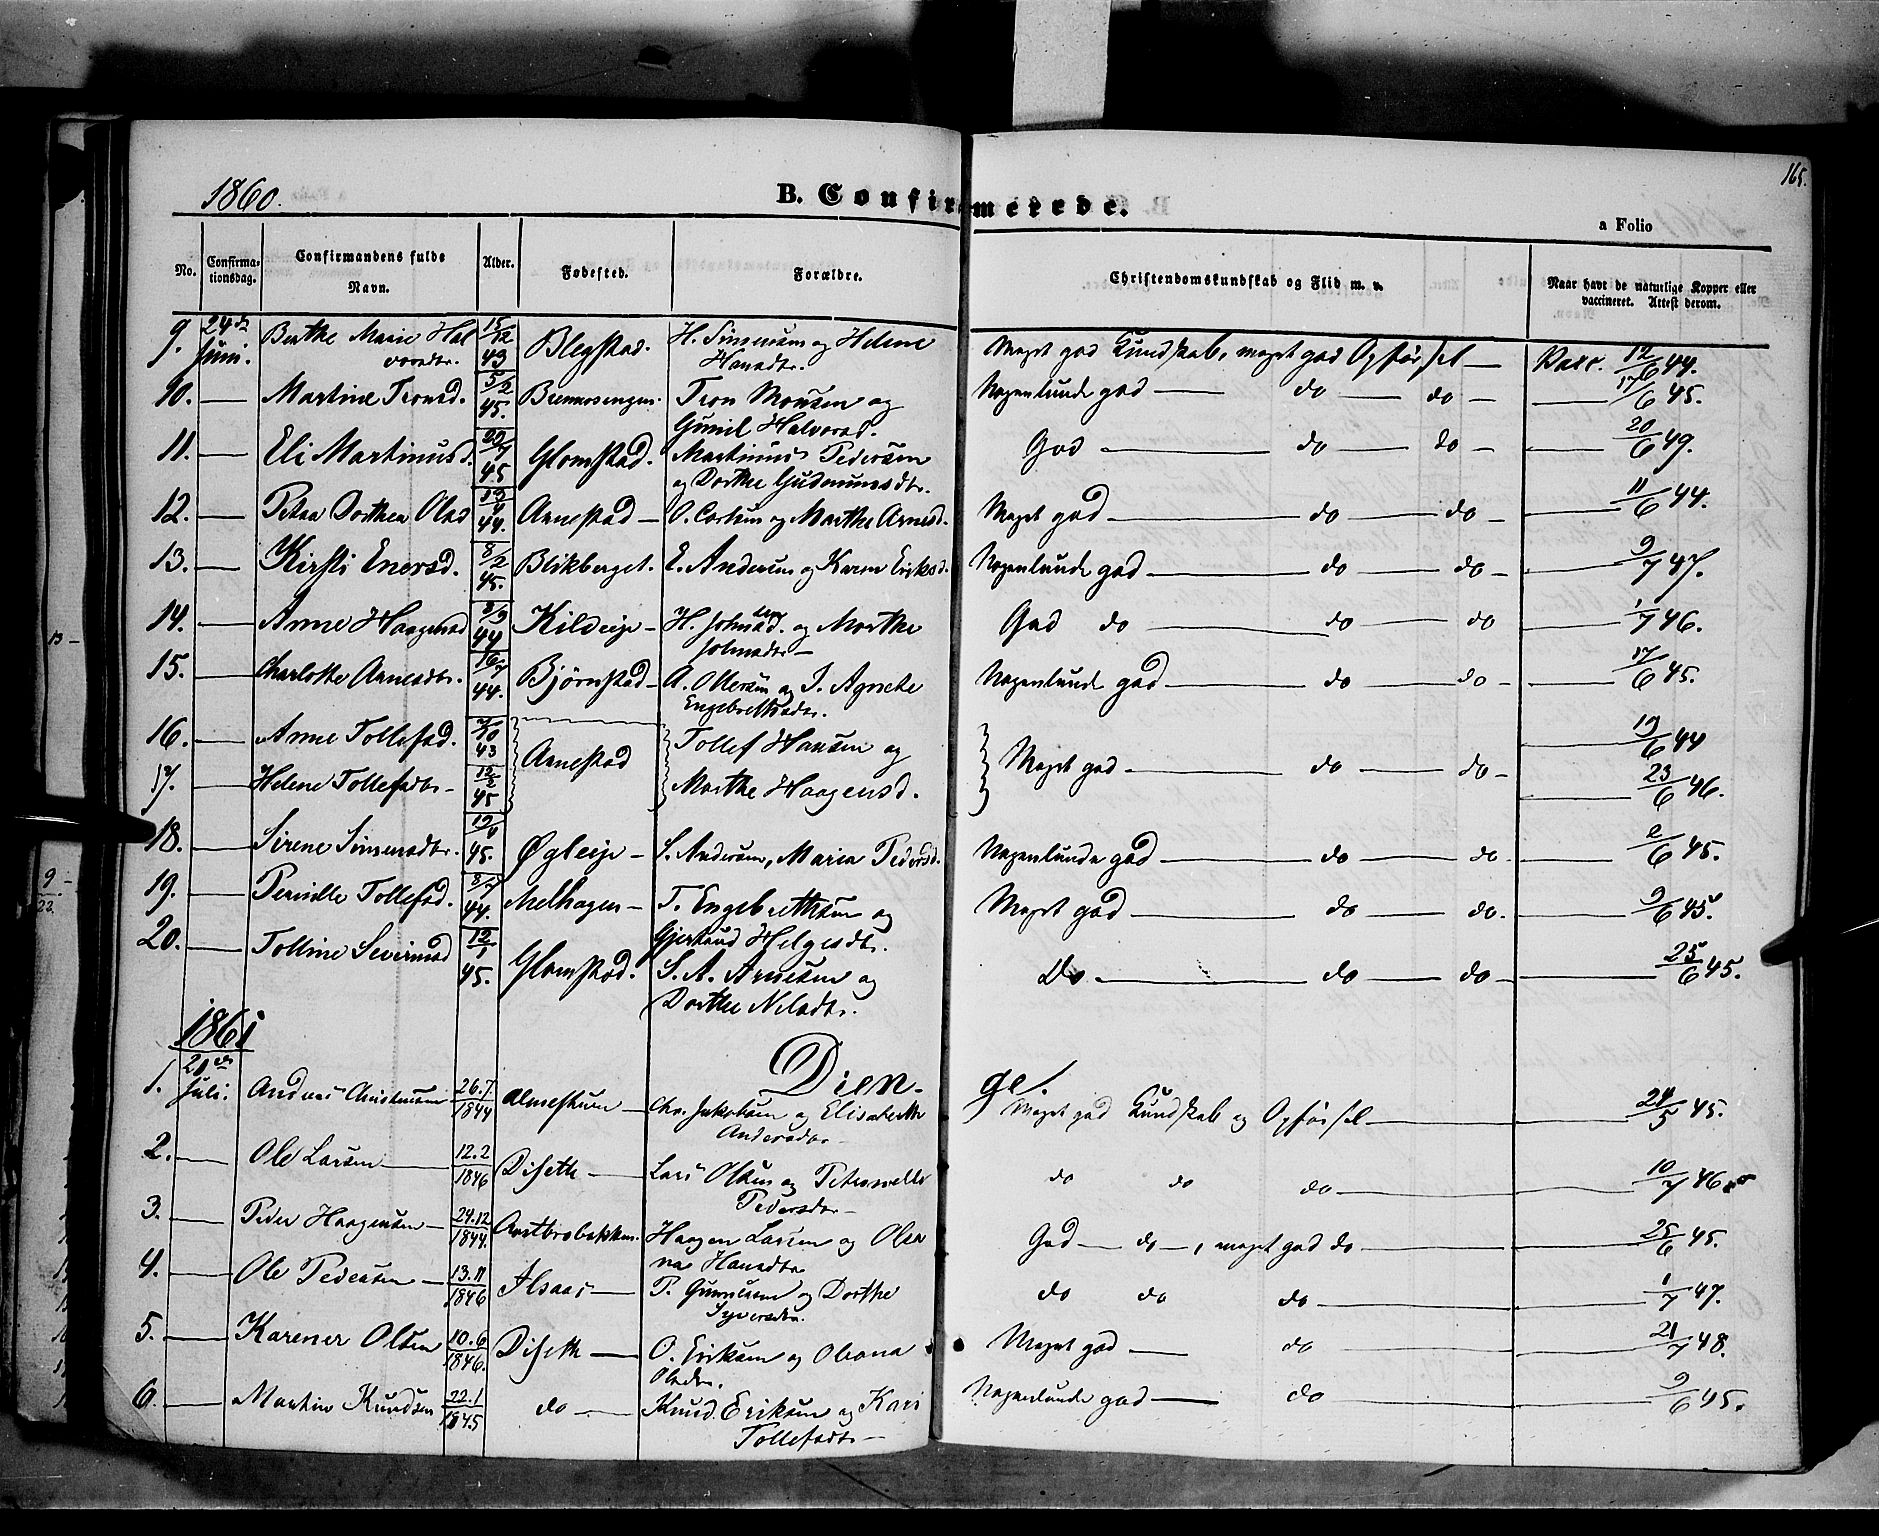 165.
1860.
B. Confirmerede.
a Folio
No. Confirmationsdag. Confirmandens fulde Navn. Alder. Fødested. Forældre. Christendomskundskab og Flid m. v. Naar havt de naturlige Kopper eller vaccineret. Attest derom.
9. 24de Juni. Berthe Marie Halvorsdtr. 15/12 43 Blegstad. H. Simensen og Helene Hansdtr. Meget god Kundskab, meget god Opførsel — Vacc. 12/6 44.
10. — Martine Tronsd. 5/2 45. Brennosengen. Tron Monsen og Gunil Halvorsd. Nogenlunde god — do — do — 17/6 45.
11. — Eli Martinusd. 45 Glomstad. Martinus Pedersen og Dorthe Gudmunsdtr. God — do — do — 20/6 49.
12. — Petra Dorthea Olsd 44. Arnestad — O. Carlsen og Marthe Arnesd. Meget god — do — do — 11/6 44.
13. — Kirsti Enersd. 8/2 45. Blikberget. E. Andersen og Karen Eriksd. Nogenlunde god — do — do — 9/7 47.
14. — Anne Haagensd 3/9 44 Kildeie — H. Johnsen og Marthe Johnsdtr — God do — do — do — 1/7 46.
15. — Charlotte Arnesdtr. 16/7 44. Bjørnstad — A. Ottersen og I. Agnethe Engebrethsdtr. Nogenlunde god — do — do — 17/6 45.
16. — Anne Tollefsd. 7/10 43 Arnestad Tollef Hansen og Meget god — do — do — 19/6 44
17. — Helene Tollefsdtr — 12/2 45 Marthe Haagensd. 23/6 46.
18. — Sirene Simensdtr. 45. Øgleie — S. Andersen, Maria Pedersd. Nogenlunde god — do — do — 2/6 45.
19. — Pernille Tollefsd. 8/7 44. Melhagen — T. Engebrethsen og Gjertrud Helgesdtr. Meget god — do — do. — 9/6 45.
20. — Tolline Severinsd 12/1 45. Glomstad. S. A. Arnesen og Dorthe Nilsdtr. Do — do — do — 25/6 45.
1861
Dienge.
1. 21de Juli. Andreas Christensen 26.7 1844 Almeskuen — Chr. Jakobsen og Elisabethe Andersdtr — Meget god Kundskab og Opførsel — 24/5 45.
2. — Ole Larsen — 12.2 1846 Diseth — Lars Olsen og Petronelle Pedersdtr — do do do — 10/7 46
3. — Peder Haagensen — 24.12 1844. Aastbrobakken. Haagen Larsen og Oleana Hansdtr God — do —, meget god do — 25/6 45.
4. — Ole Pedersen — 13.11 1846 Alsaas — P. Gunnesen og Dorthe Syversdtr. do do do — 1/7 47.
5. — Karener Olsen 10.6 1846. Diseth — O. Eriksen og Oleana Olsdtr. Meget god — do — 21/7 48.
6. — Martin Knudsen 22.1 1845 do — Knud Eriksen og Kari Tollefsdtr — Nogenlunde god — do — 9/6 45.